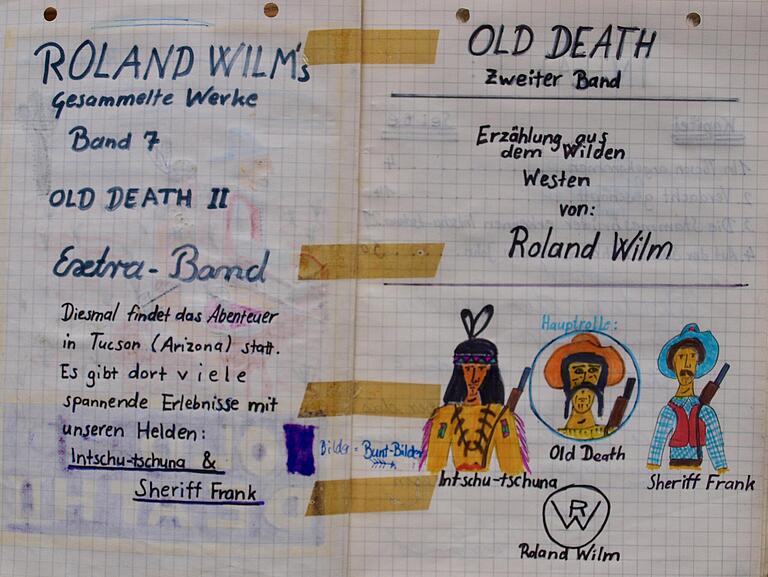 ROLAND WILM's
Gesammelte Werke
Band 7
OLD DEATH II
Exetra-Band
Diesmal findet das Abenteuer
in Tucson (Arizona) statt.
Es gibt dort viele
spannende Erlebnisse mit
unseren Helden:
Intschu-tschuna &
Sheriff Frank
Bilder = Bunt-Bilder
OLD DEATH
Zweiter Band
Erzählung aus
dem Wilden
Westen
von:
Roland Wilm
Hauptrolle:
Old Death
Intschu-tschuna
Sheriff Frank
RW
Roland Wilm